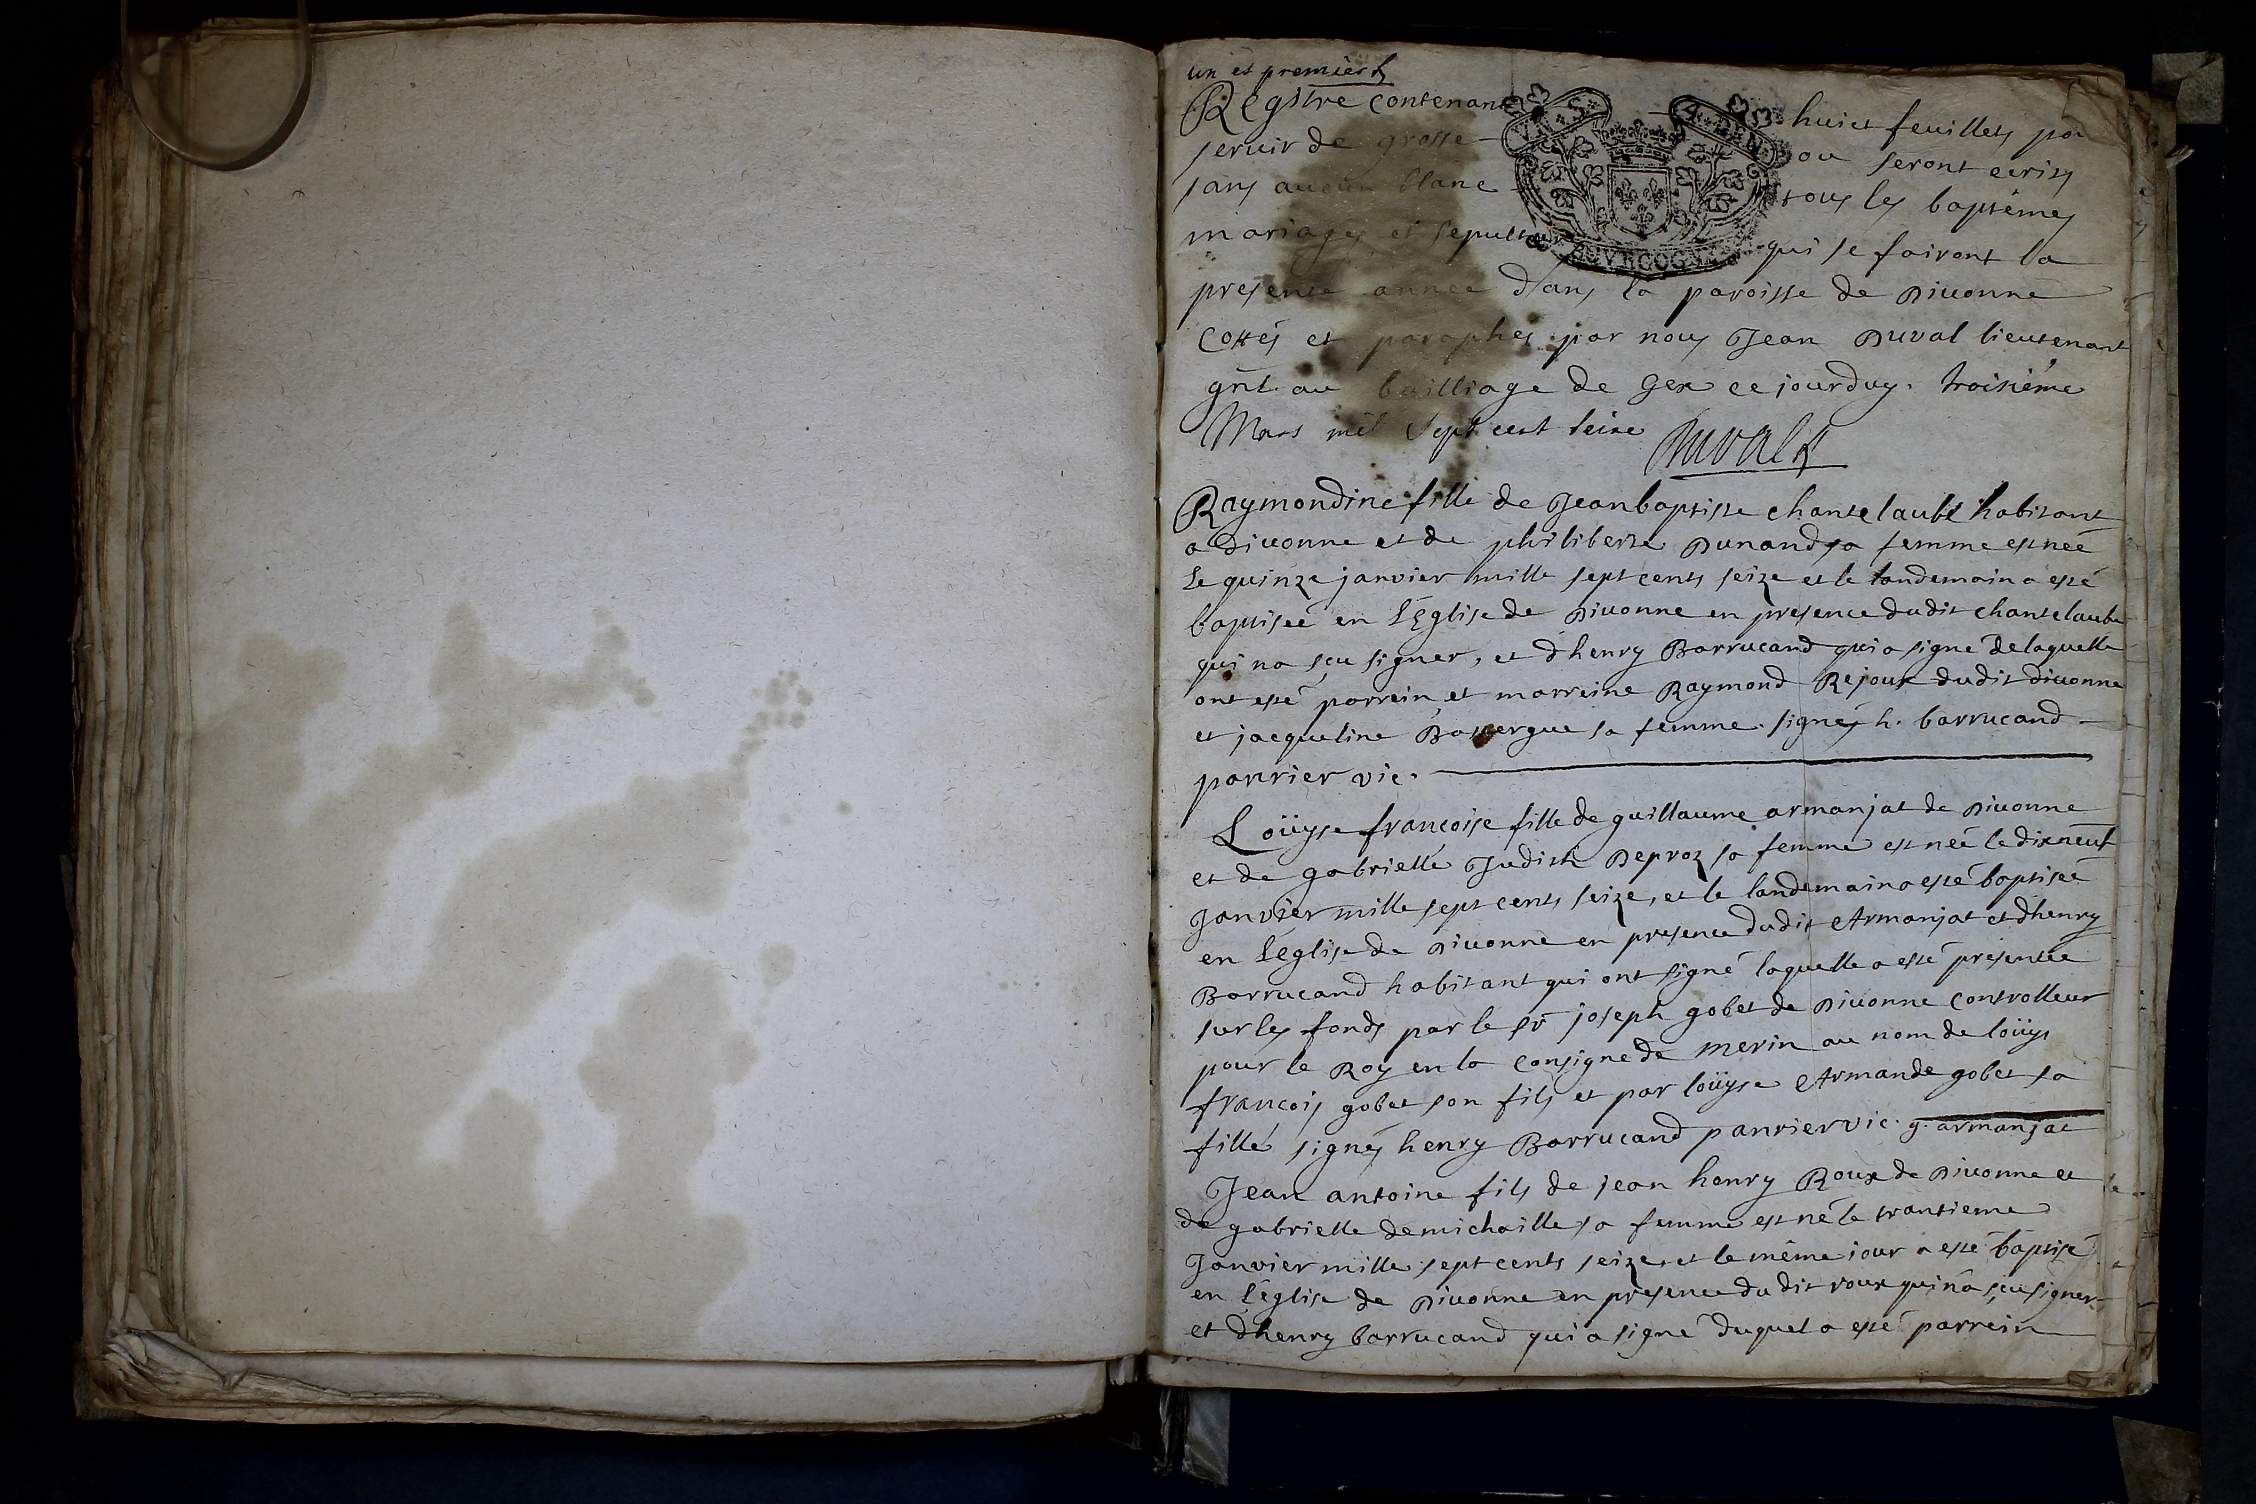 un et premier
Registre contenant huict feuillets pour
servir de grosse ou seront ecrits
sans aucun blanc tous les baptêmes
mariages et sepultures qui se fairont la
presente année dans la paroisse de Divonne
Cottés et paraphes par nous Jean Duval lieutenant
gnl. au bailliage de Gex ce jourduy troisième
Mars mil sept cent seize Duval
Raymondine fille de Jean baptiste chantelaube habitant
a divonne et de philiberte Dunand sa femme est née
Le quinze janvier mille sept cents seize et le landemain a esté
baptisée en L'Eglise de Divonne en presence dudit chantelaube
qui na sçu signer, et d'henry Barrucand qui a signé de laquelle
ont esté parrein et marreine Raymond Rejoux dudit divonne
et jacqueline sa femme. signés h. barrucand
panrier vic.
Loüyse francoise fille de guillaume armanjat de Divonne
et de gabrielle Judith Deproz sa femme est née le dixneuf
Janvier mille sept cents seize, et le landemain a esté baptisée
en L'église de Divonne en presence dudit Armanjat et d'henry
Barrucand habitant qui ont signé laquelle a esté présentée
sur les fonds par le sr joseph gobet de Divonne Controlleur
pour le Roy en la Consigne de merin au nom de loüys
francois gobet son fils et par loüyse Armande gobet sa
fille signés henry Barrucand panrier vic. g. armanjat
Jean antoine fils de jean henry Roux de Divonne et
de gabrielle demichaille sa femme est né le trantieme
Janvier mille sept cents seize, et le même jour a esté baptisé
en L'église de Divonne en presence dudit roux qui n'a sçeu signer
et d'henry barrucand qui a signé duquel a esté parrein
VN. S.
4. DEN.
BOVRGOGNE